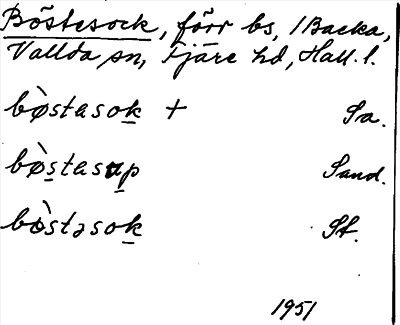 Böstesock, förr bs, i Backa,
Vallda sn, Fjäre hd, Hall. l.
bø̀stasok + Sa.
bø̀stasup Sand.
bòstəsok St.
1951